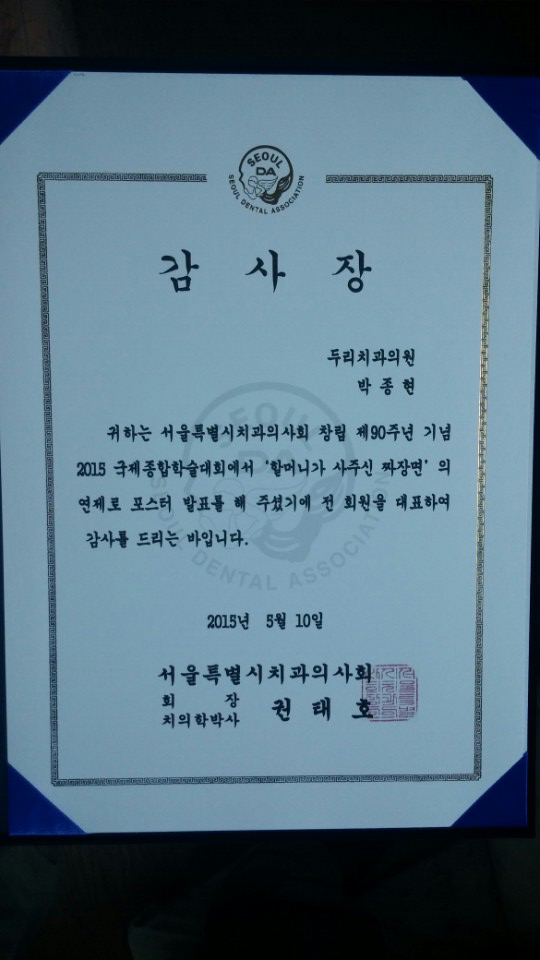 SEOUL
DA
SEOUL DENTAL ASSOCIATION
감 사 장
두리치과의원
박 종 현
귀하는 서울특별시치과의사회 창립 제90주년 기념
2015 국제종합학술대회에서 '할머니가 사주신 짜장면' 의
연제로 포스터 발표를 해 주셨기에 전 회원을 대표하여
감사를 드리는 바입니다.
SEOUL
DA
SEOUL DENTAL ASSOCIATION
2015년 5월 10일
서울특별시치과의사회
회 장
치의학박사 권 태 호